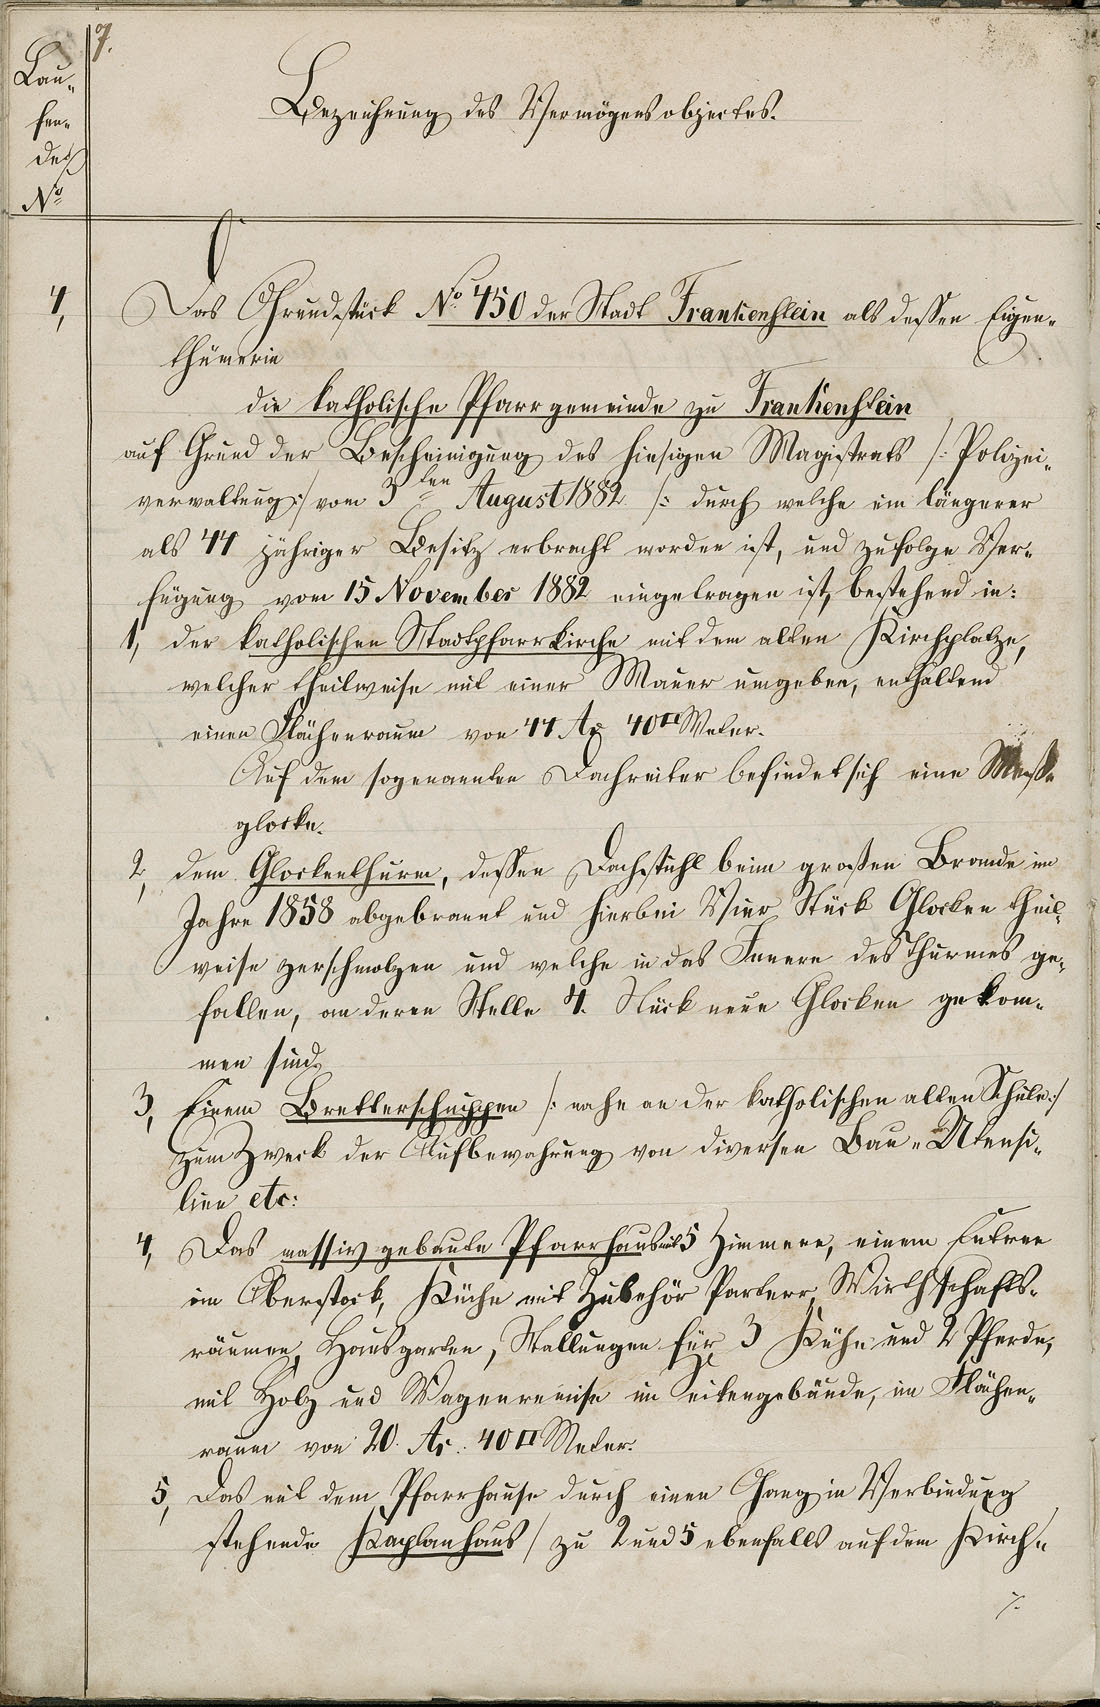 7.
Lau-
fen-
des
No
Bezeichnung des Vermögensobjectes.
C.
1, Das Grundstück No 450 der Stadt Frankenstein als dessen Eigen-
thümerin
die katholische Pfarrgemeinde zu Frankenstein
auf Grund der Bescheinigung des hiesigen Magistrats /: Polizei-
verwaltung :/ vom 3ten August 1882 /: durch welche ein längerer
als 44 jähriger Besitz erbracht worden ist, und zufolge Ver-
fügung vom 15 November 1882 eingetragen ist, bestehend in:
1, der katholischen Stadtpfarrkirche mit dem alten Kirchplatze,
welcher theilweise mit einer Mauer umgeben, enthaltend
einen Flächenraum von 44 Ar 40 □ Meter.
Auf dem sogenannten Dachreiter befindet sich eine Meß-
glocke.
2, dem Glockenthurm, dessen Dachstuhl beim großen Brande im
Jahre 1858 abgebrannt und hierbei Vier Stück Glocken theil-
weise zerschmolzen und welche in das Innere des Thurmes ge-
fallen, an deren Stelle 4. Stück neue Glocken gekom-
men sind.
3, Einem Bretterschuppen /: nahe an der katholischen alten Schule :/
zum Zweck der Aufbewahrung von diversen Bau-Utensi-
lien etc:
4, Das massiv gebaute Pfarrhaus mit 5 Zimmern, einem Entree
im Oberstock, Küche mit Zubehör Parterr, Wirthschafts-
räumen, Hausgarten, Stallungen für 3 Kühe und 2 Pferde,
mit Holz und Wagenremise im Seitengebäude, im Flächen-
raum von 20. Ar. 40 □ Meter.
5, Das mit dem Pfarrhause durch einen Gang in Verbindung
stehende Kaplanhaus / zu 2 und 5 ebenfalls auf dem Kirch-
/.